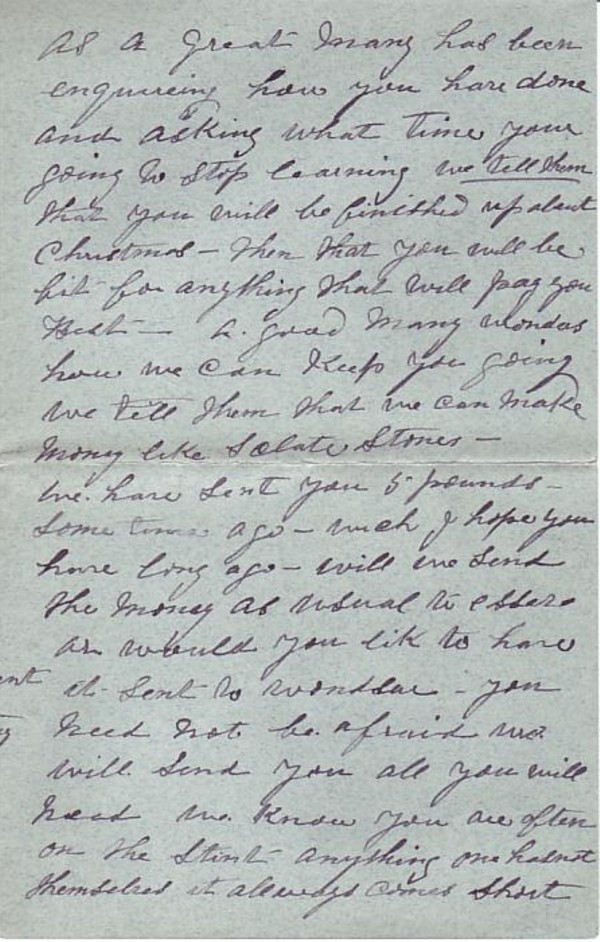 as a great many has been
enquireing how you have done
and asking what time your
going to stop learning we tell them
that you will be finished up about
Christmas - then that you will be
fit for anything that will pay you
Best - a good many wondas
how we can keep you going
we tell them that we can make
Money like Sclate Stones -
we have sent you 5 pounds -
some time ago - wich I hope you
have long ago - will we send
the money as usual to
ar would you lik to have
it sent to - you
need not be afraid we
will send you all you will
need we know you are often
on the stint anything one has not
themselves it allways comes short
nt
y